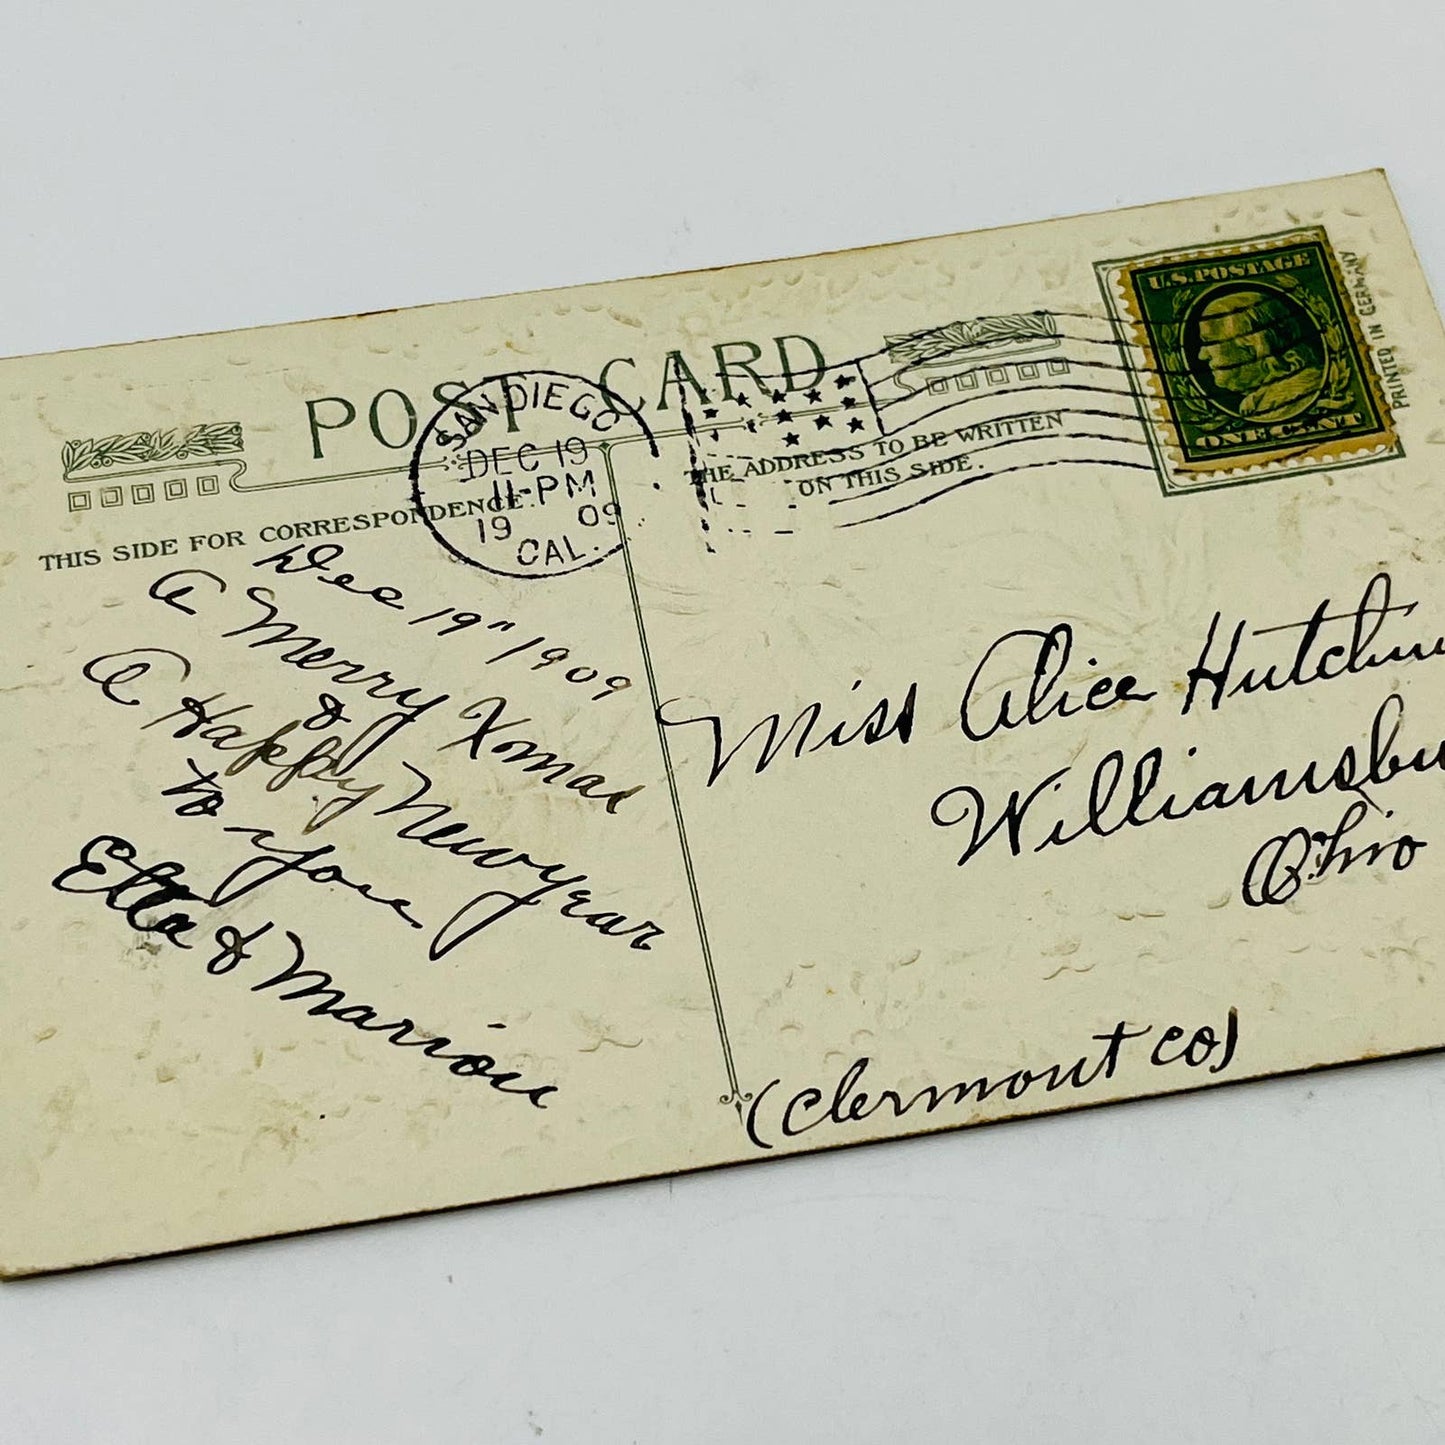 POST CARD
THIS SIDE FOR CORRESPONDENCE.
THE ADDRESS TO BE WRITTEN
ON THIS SIDE.
SAN DIEGO
DEC 19
11-PM
19 09
CAL.
U.S. POSTAGE
ONE CENT
PRINTED IN GERMANY
Dec 19" 1909
A Merry Xmas
&
A Happy New year
to you
Etta & Marion
Miss Alice Hutchin
Williamsbu
Ohio
(Clermont co)